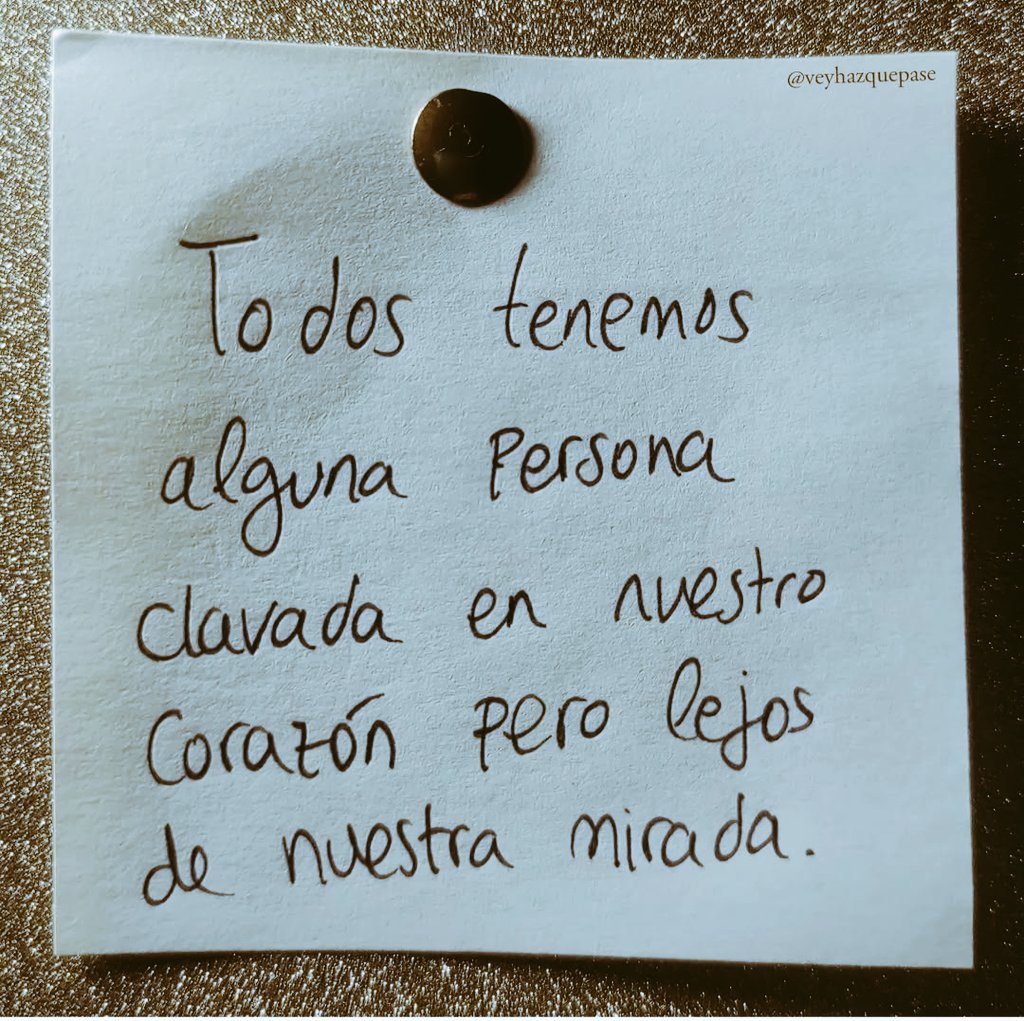 @veyhazquepase
Todos tenemos
alguna persona
clavada en nuestro
corazón pero lejos
de nuestra mirada.